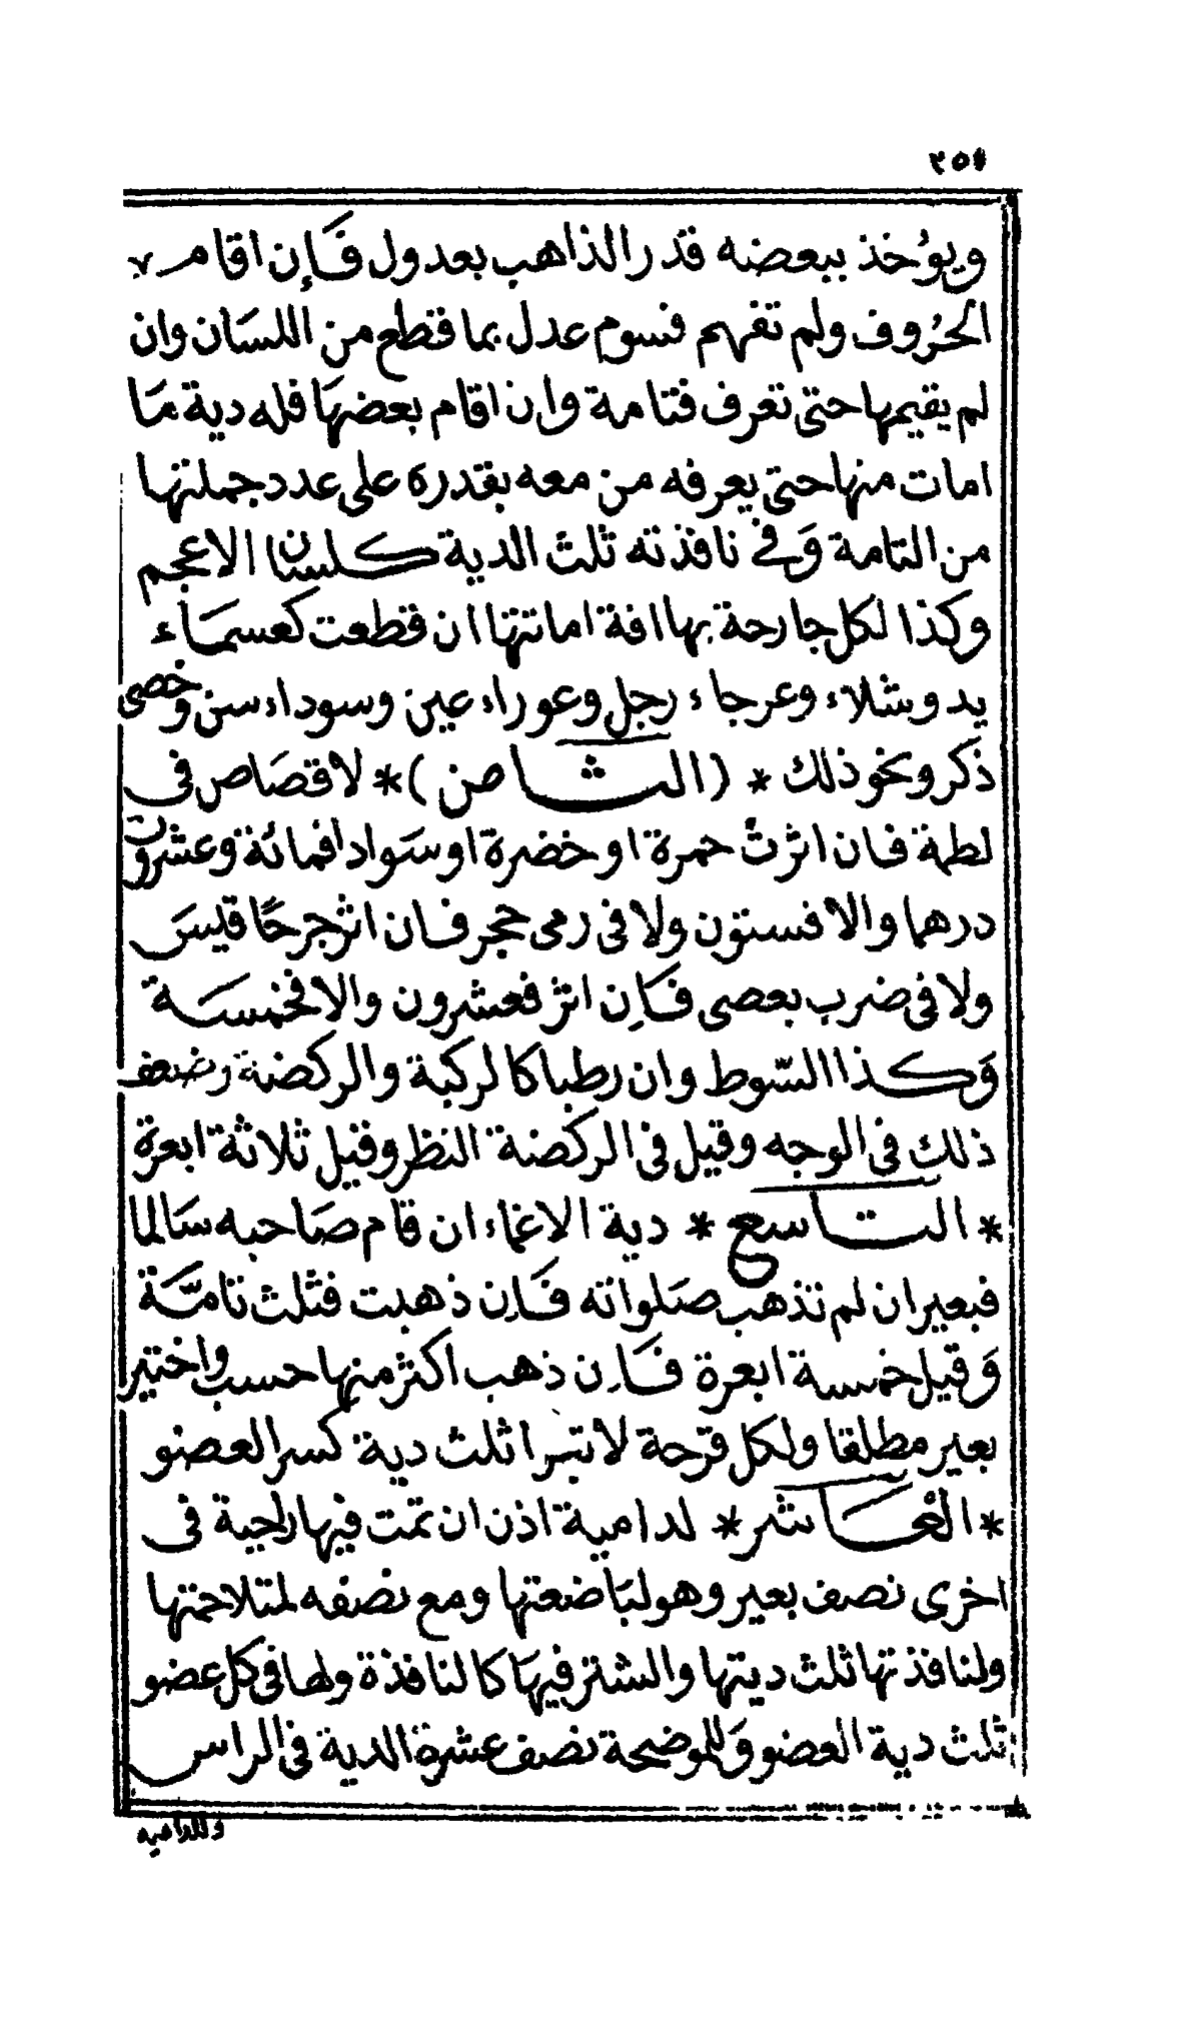 ٢٥٦
ويؤخذ ببعضه قدر الذاهب بعدول فَإن اقام
الحرُوف ولم تفهم فسوم عدل بما قطع من اللسَان وان
لم يقيمها حتى تعرف فتامة وان اقام بعضهَا فله دية مَا
امات منها حتى يعرفه من معه بقدره على عدد جملتها
من التامة وَفي نافذته ثلث الدية كلسان الاعجم
وكذا لكل جارحة بها افة اماتتها ان قطعت كعسمَاء
يد وشلاء وعرجاء رجل وعوراء عين وسوداء سن وخصى
ذكر ونحو ذلك * (الثامن) * لا قصَاص فى
لطمة فان اثرت حمرة او خضرة او سَوادا فمائة وعشرون
درهما والا فستون ولا فى رمى حجر فان اثر جرحًا قيسَ
ولا فى ضرب بعصى فَاِن اثر فعشرون والا فخمسَة
وَكذا السّوط وان رطبا كالركبة والركضة وضعف
ذلك فى الوجه وقيل فى الركضة النظر وقيل ثلاثة ابعرة
* التاسع * دية الاغماء ان قام صَاحبه سَالما
فبعير ان لم تذهب صَلواته فَاِن ذهبت فثلث تامّة
وَقيل خمسة ابعرة فَاِن ذهب اكثر منها حسب واختير
بعير مطلقا ولكل قرحة لا تبرا ثلث دية كسر العضو
* العَاشر * لدامية اذن ان تمت فيها راجبة فى
اخرى نصف بعير وهو لبَاضعتها ومع نصفه لمتلاحمتها
ولنافذتها ثلث ديتها والشتر فيهَا كالنافذة ولها فى كل عضو
ثلث دية العضو وَللموضحة نصف عشرة الدية فى الراس
وللدامية